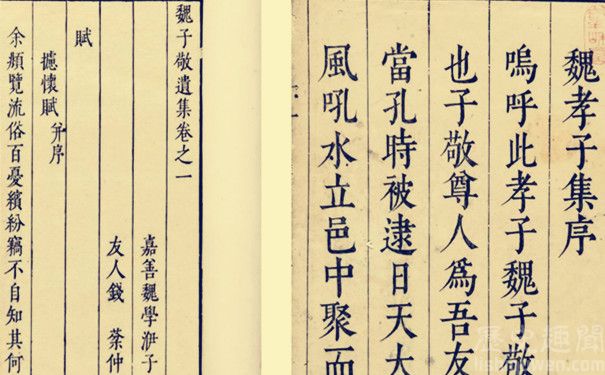 魏孝子集序
嗚呼此孝子魏子敬
也子敬尊人爲吾友
當孔時被逮日天大
風吼水立邑中聚而
魏子敬遺集卷之一
嘉善魏學洢子
友人錢 棻仲
賦
攄懷賦 并序
余頫覽流俗百憂繽紛竊不自知其何